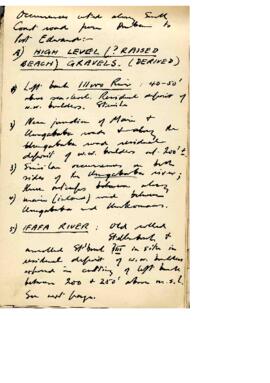 Occurrences noted along South
Coast road from Durban to
Port Edward:-
A) HIGH LEVEL (? RAISED
BEACH) GRAVELS. (DERIVED)
1) Left bank Illovo River : 40-50'
above sea-level. Residual deposit of
w.w. boulders. Sterile
2) Near junction of Main &
Umgababa roads & along the
Umgababa road residual
deposit of w.w. boulders at 200' ±
3) Similar occurrences on both
sides of the Umgababa river;
these outcrops between along
4) main (inland) road between
Umgababa and Umkomaas.
5) IFAFA RIVER : Old rolled
Stellenbosch &
unrolled St'bosch III in situ in
residual deposit of w.w. boulders
exposed in cutting of left bank
between 200 & 250' above m.s.l.
See next page.